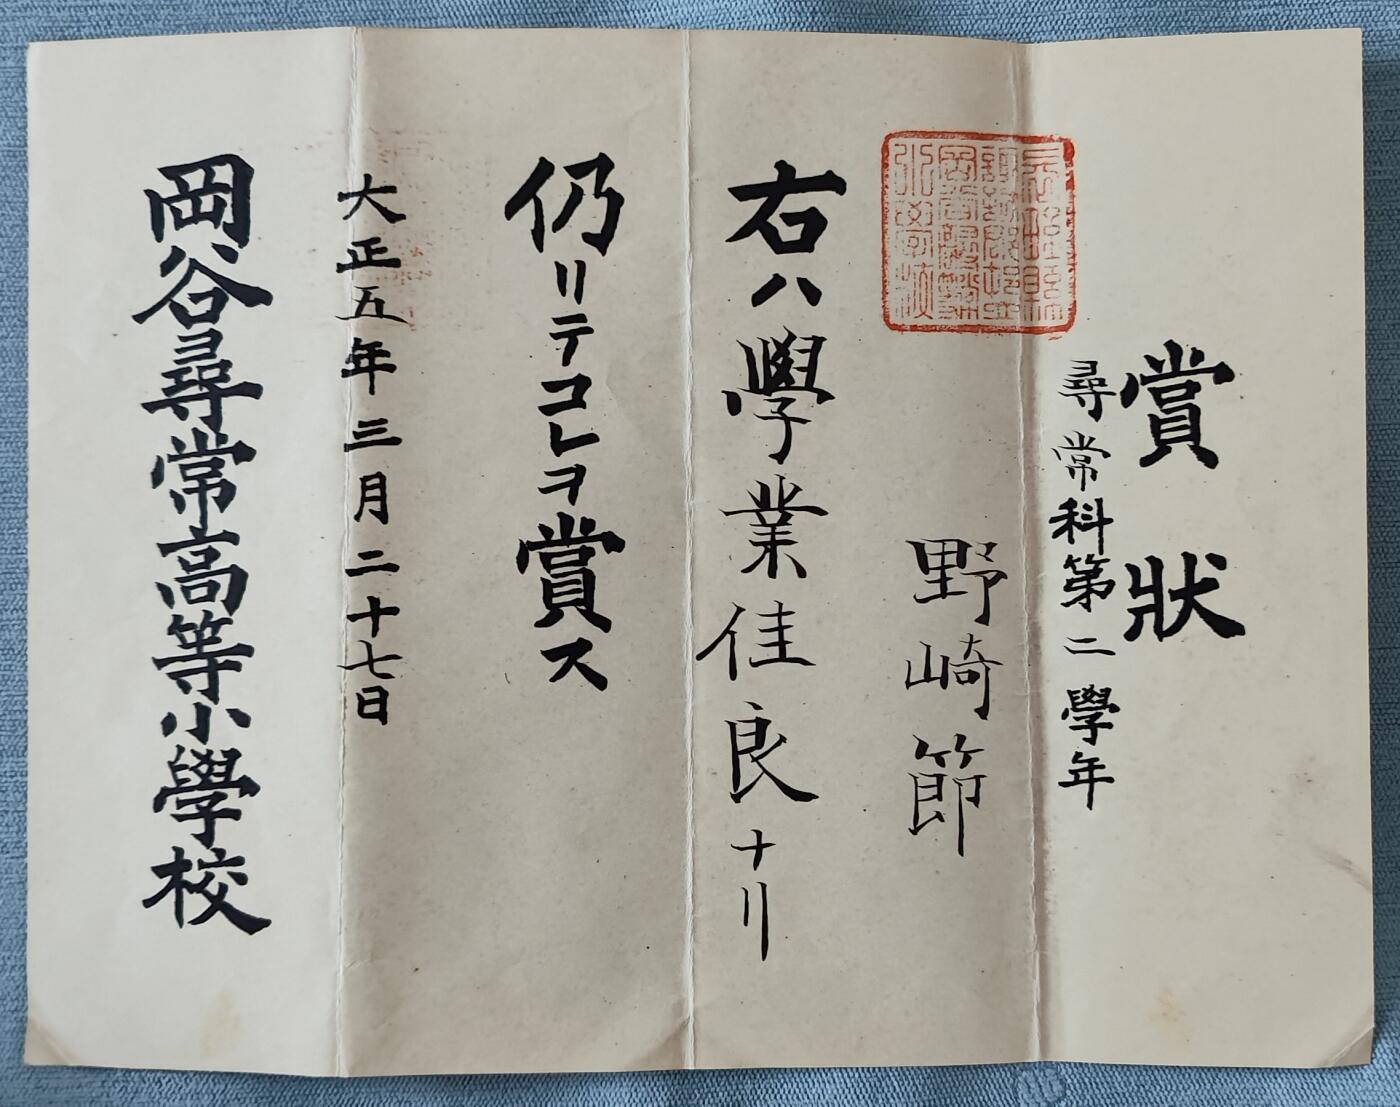 賞狀
尋常科第二學年
野崎節
右ハ學業佳良ナリ
仍リテコレヲ賞ス
大正五年三月二十七日
岡谷尋常高等小學校